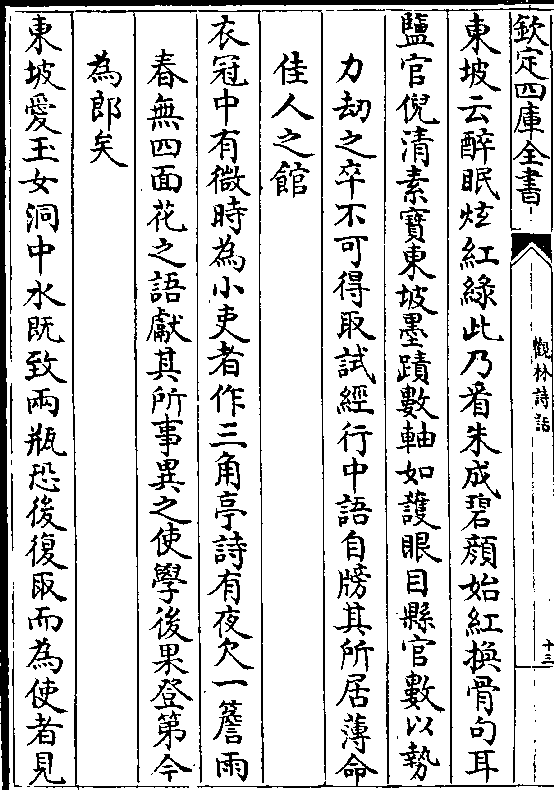 欽定四庫全書
觀林詩話
十三
東坡云醉眠炫紅綠此乃看朱成碧顔始紅換骨句耳
鹽官倪清素寶東坡墨蹟數軸如護眼目縣官數以勢
力刼之卒不可得取試經行中語自牓其所居薄命
佳人之館
衣冠中有微時為小吏者作三角亭詩有夜欠一簷雨
春無四面花之語獻其所事異之使學後果登第今
為郎矣
東坡愛玉女洞中水既致兩瓶恐後復取而為使者見